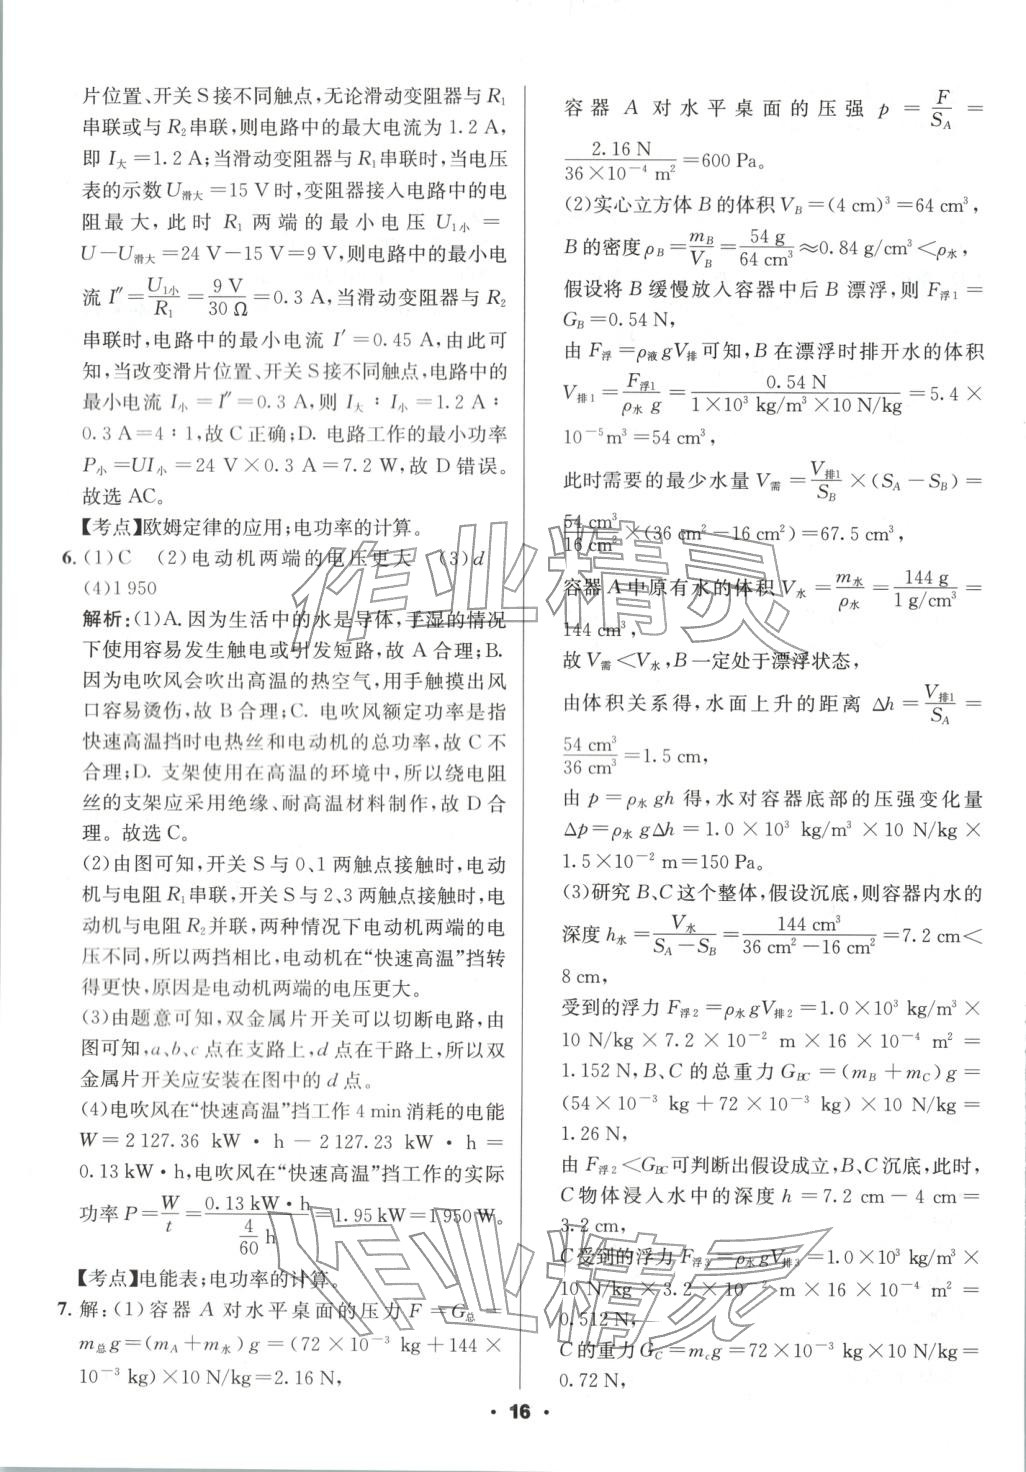 片位置、开关 S 接不同触点，无论滑动变阻器与 R₁
串联或与 R₂ 串联，则电路中的最大电流为 1.2 A，
即 I大＝1.2 A；当滑动变阻器与 R₁ 串联时，当电压
表的示数 U滑大＝15 V 时，变阻器接入电路中的电
阻最大，此时 R₁ 两端的最小电压 U₁小＝
U－U滑大＝24 V－15 V＝9 V，则电路中的最小电
流 I″＝U₁小/R₁＝9 V/30 Ω＝0.3 A，当滑动变阻器与 R₂
串联时，电路中的最小电流 I′＝0.45 A，由此可
知，当改变滑片位置、开关 S 接不同触点，电路中的
最小电流 I小＝I″＝0.3 A，则 I大∶I小＝1.2 A∶
0.3 A＝4∶1，故 C 正确；D. 电路工作的最小功率
P小＝UI小＝24 V×0.3 A＝7.2 W，故 D 错误。
故选 AC。
【考点】欧姆定律的应用；电功率的计算。
6. (1)C　(2)电动机两端的电压更大　(3)d
(4)1 950
解析：(1)A. 因为生活中的水是导体，手湿的情况
下使用容易发生触电或引发短路，故 A 合理；B.
因为电吹风会吹出高温的热空气，用手触摸出风
口容易烫伤，故 B 合理；C. 电吹风额定功率是指
快速高温挡时电热丝和电动机的总功率，故 C 不
合理；D. 支架使用在高温的环境中，所以绕电阻
丝的支架应采用绝缘、耐高温材料制作，故 D 合
理。故选 C。
(2)由图可知，开关 S 与 0、1 两触点接触时，电动
机与电阻 R₁ 串联，开关 S 与 2、3 两触点接触时，电
动机与电阻 R₂ 并联，两种情况下电动机两端的电
压不同，所以两挡相比，电动机在“快速高温”挡转
得更快，原因是电动机两端的电压更大。
(3)由题意可知，双金属片开关可以切断电路，由
图可知，a、b、c 点在支路上，d 点在干路上，所以双
金属片开关应安装在图中的 d 点。
(4)电吹风在“快速高温”挡工作 4 min 消耗的电能
W＝2 127.36 kW·h－2 127.23 kW·h＝
0.13 kW·h，电吹风在“快速高温”挡工作的实际
功率 P＝W/t＝0.13 kW·h/(4/60 h)＝1.95 kW＝1 950 W。
【考点】电能表；电功率的计算。
7. 解：(1)容器 A 对水平桌面的压力 F＝G总＝
m总g＝(mA＋m水)g＝(72×10⁻³ kg＋144×
10⁻³ kg)×10 N/kg＝2.16 N，
容器 A 对水平桌面的压强 p＝F/SA＝
2.16 N/(36×10⁻⁴ m²)＝600 Pa。
(2)实心立方体 B 的体积 VB＝(4 cm)³＝64 cm³，
B 的密度 ρB＝mB/VB＝54 g/64 cm³≈0.84 g/cm³＜ρ水，
假设将 B 缓慢放入容器中后 B 漂浮，则 F浮1＝
GB＝0.54 N，
由 F浮＝ρ液gV排可知，B 在漂浮时排开水的体积
V排1＝F浮1/(ρ水 g)＝0.54 N/(1×10³ kg/m³×10 N/kg)＝5.4×
10⁻⁵m³＝54 cm³，
此时需要的最少水量 V需＝V排1/SB×(SA－SB)＝
54 cm³/16 cm²×(36 cm²－16 cm²)＝67.5 cm³，
容器 A 中原有水的体积 V水＝m水/ρ水＝144 g/(1 g/cm³)＝
144 cm³，
故 V需＜V水，B 一定处于漂浮状态，
由体积关系得，水面上升的距离 Δh＝V排1/SA＝
54 cm³/36 cm²＝1.5 cm，
由 p＝ρ水 gh 得，水对容器底部的压强变化量
Δp＝ρ水 gΔh＝1.0×10³ kg/m³×10 N/kg×
1.5×10⁻² m＝150 Pa。
(3)研究 B、C 这个整体，假设沉底，则容器内水的
深度 h水＝V水/(SA－SB)＝144 cm³/(36 cm²－16 cm²)＝7.2 cm＜
8 cm，
受到的浮力 F浮2＝ρ水gV排2＝1.0×10³ kg/m³×
10 N/kg×7.2×10⁻² m×16×10⁻⁴ m²＝
1.152 N，B、C 的总重力 GBC＝(mB＋mC)g＝
(54×10⁻³ kg＋72×10⁻³ kg)×10 N/kg＝
1.26 N，
由 F浮2＜GBC可判断出假设成立，B、C 沉底，此时，
C 物体浸入水中的深度 h＝7.2 cm－4 cm＝
3.2 cm，
C 受到的浮力 F浮3＝ρ水gV排3＝1.0×10³ kg/m³×
10 N/kg×3.2×10⁻² m×16×10⁻⁴ m²＝
0.512 N，
C 的重力 GC＝mcg＝72×10⁻³ kg×10 N/kg＝
0.72 N，
作业精灵
作业精灵
·16·